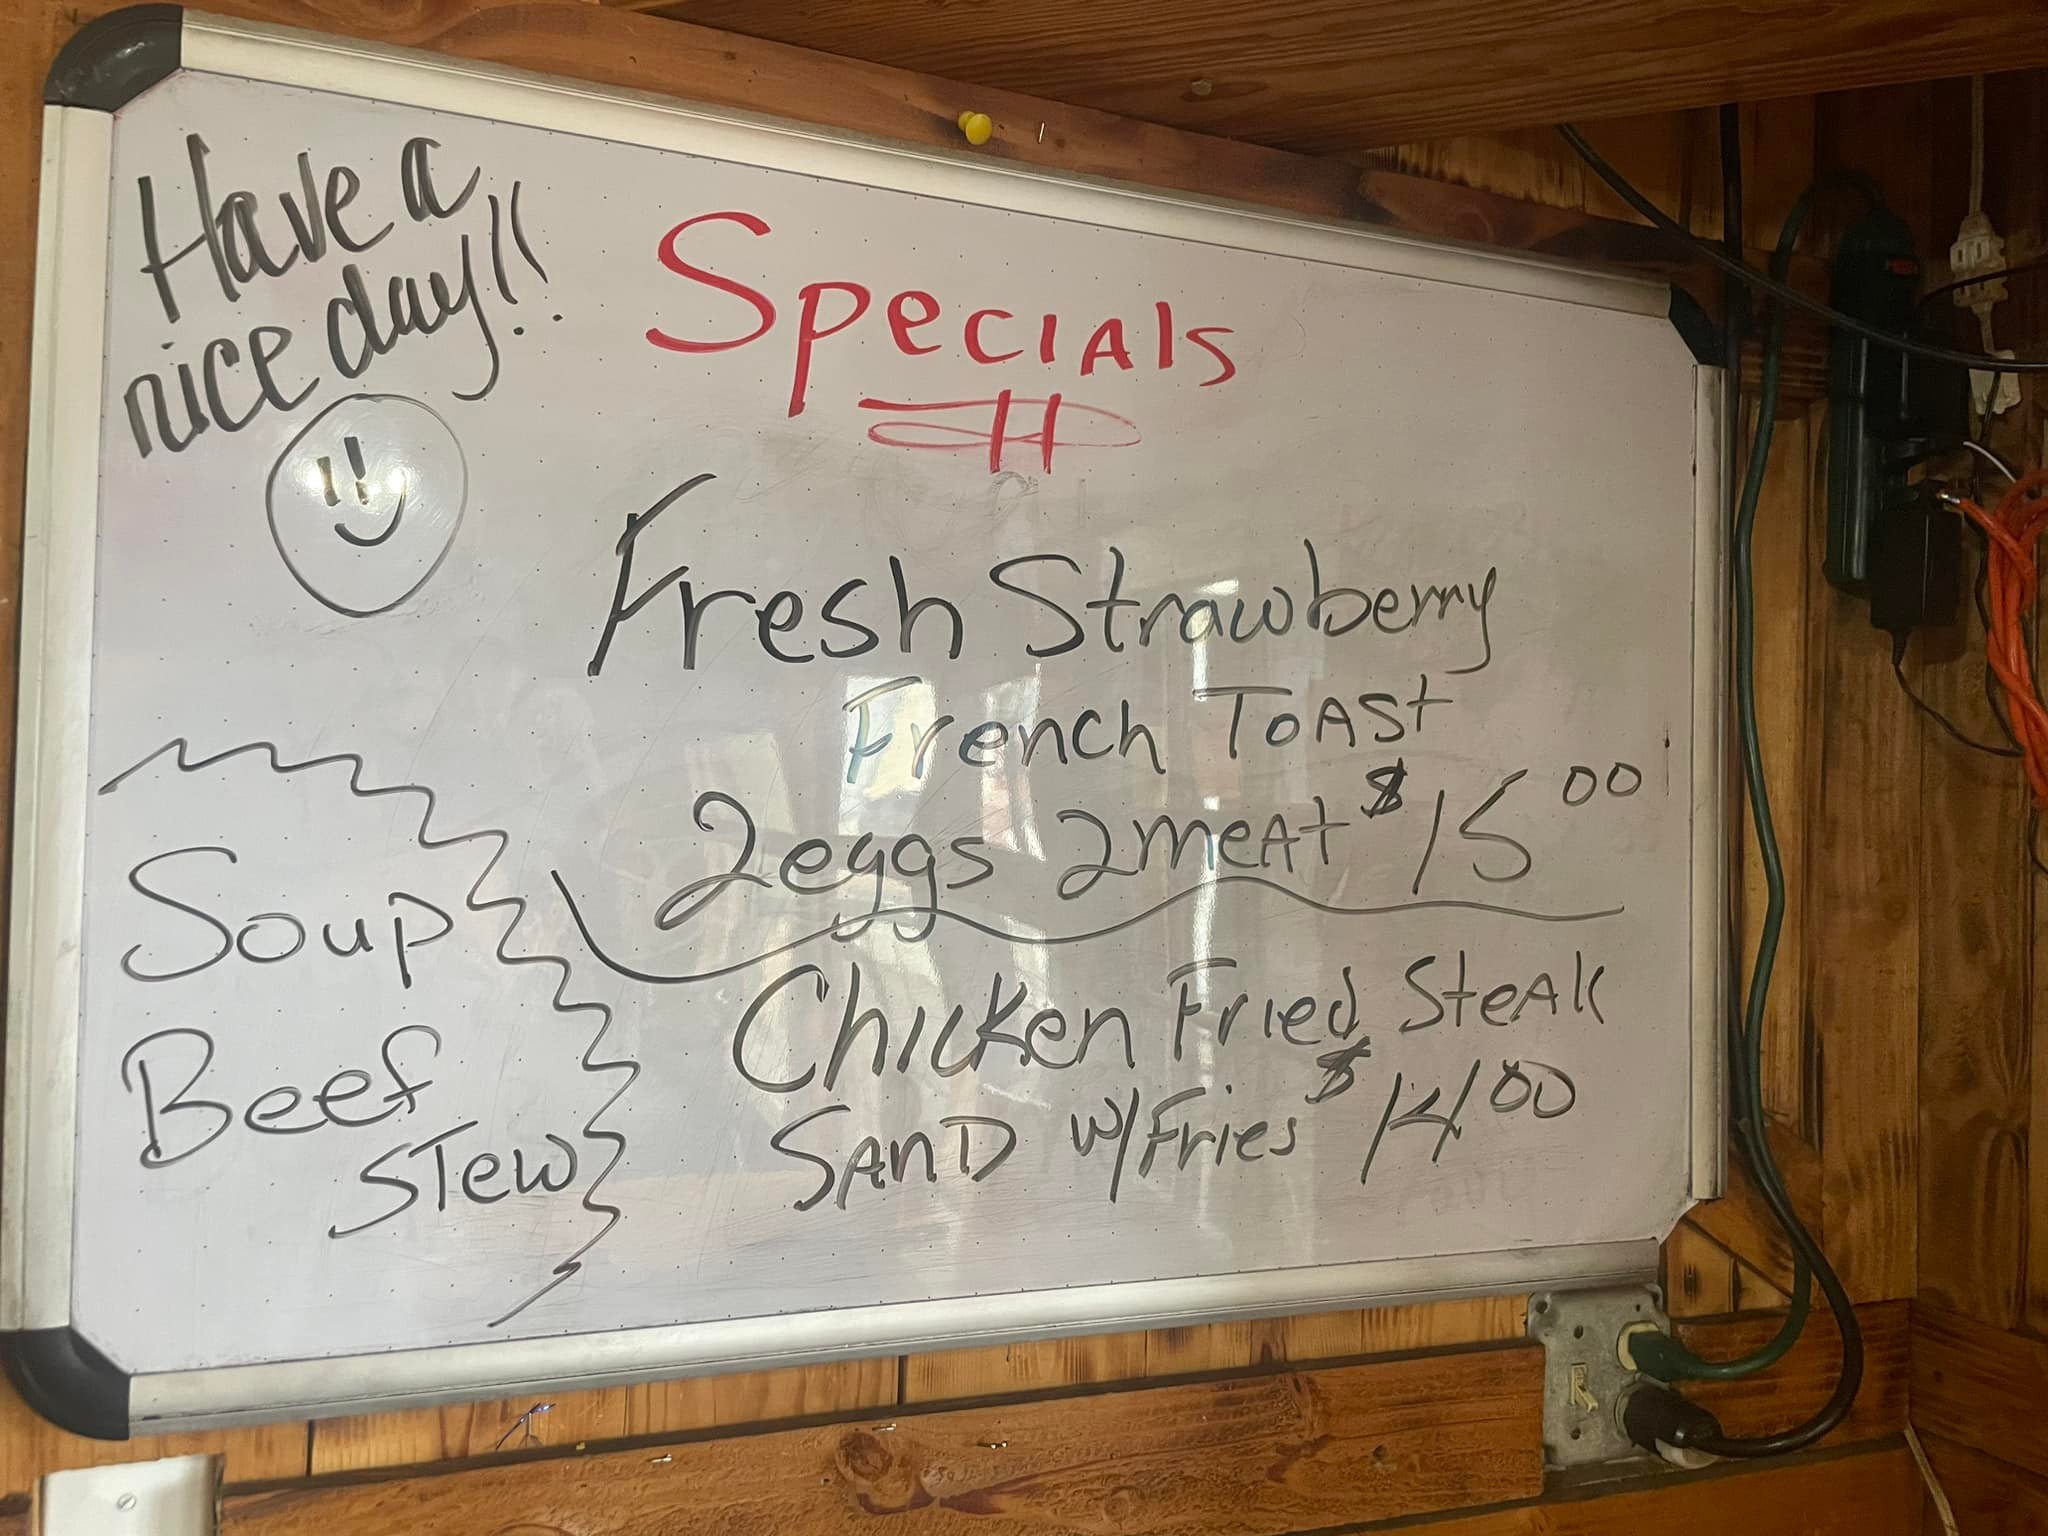 Have a
nice day!!
Specials
Fresh Strawberry
French Toast
2eggs 2meat $15.00
Chicken Fried Steak
Sand w/Fries $14.00
Soup
Beef
Stew